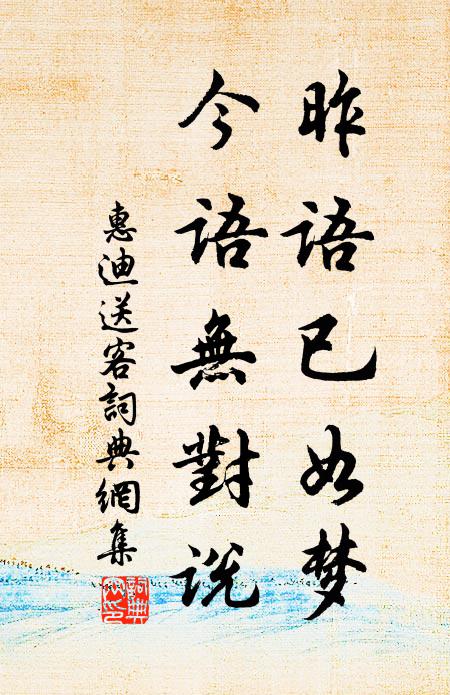 昨语已如梦
今语無對说
惠迪送客詞典網集
詞典